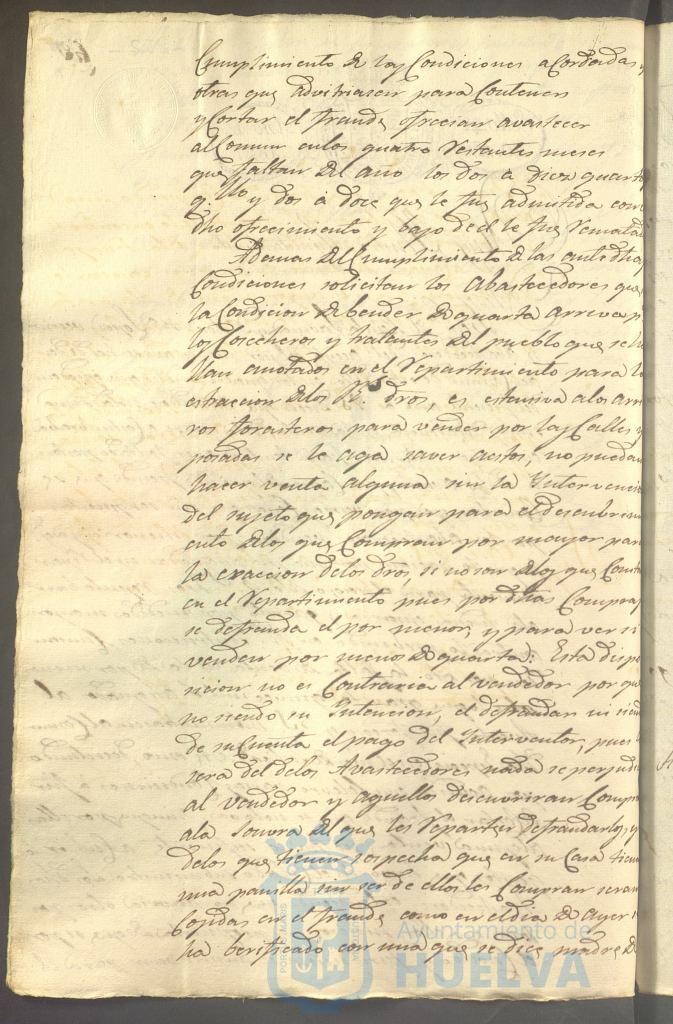 Cumplimiento de las Condiciones acordadas y
otras que advitriasen para Contener
y Cortar el fraude ofrecian avastecer
al Comun en los quatro restantes meses
que faltan del año los dos a diez quartos
q.llo y dos a doce que le fue admitida con
dho ofrecimiento y bajo de el le fue rematado
Ademas del Cumplimiento de las antedhas
Condiciones solicitan los Abastecedores que
la Condicion de bender de quarta arriva p
los Cosecheros y tratantes del pueblo que se ha
llan anotados en el Repartimiento para la
estraccion de los R.s dros, es estensiva a los arrie
ros forasteros para vender por las Calles y
posadas se le aga saver a estos, no puedan
hacer venta alguna sin la Intervencion
del sujeto que pongan para el descubrimi
ento de los que Compran por mayor para
la exaccion de los dros, si no son de los que Constan
en el Repartimiento pues por dhas Compras
se defrauda el por menor, y para ver si
venden por menos de quarta: Esta dispo
sicion no es Contraria al vendedor por que
no siendo su Intencion, el defraudar ni siendo
de su Cuenta el pago del Interventor, pues
sera del de los Avastecedores nada se perjudica
al vendedor y aquellos descuvriran Compra
a la sonvra del que les Reparten defraudarlos, y
de los que tienen sospecha que en su Casa tienen
una panilla sin ser de ellos les Compran seran
Cojidas en el fraude como en el dia de ayer se
ha berificado con una que se dice madre de
Ayuntamiento de
HUELVA